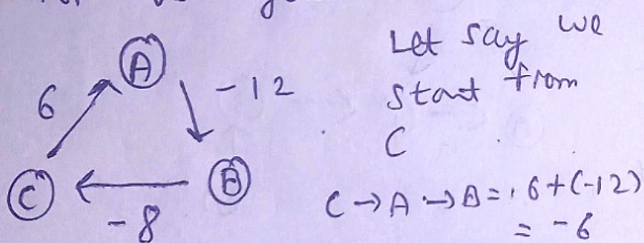 A
6
-12
C
B
-8
Let say we
start from
C
C → A → B = 6 + (-12)
= -6